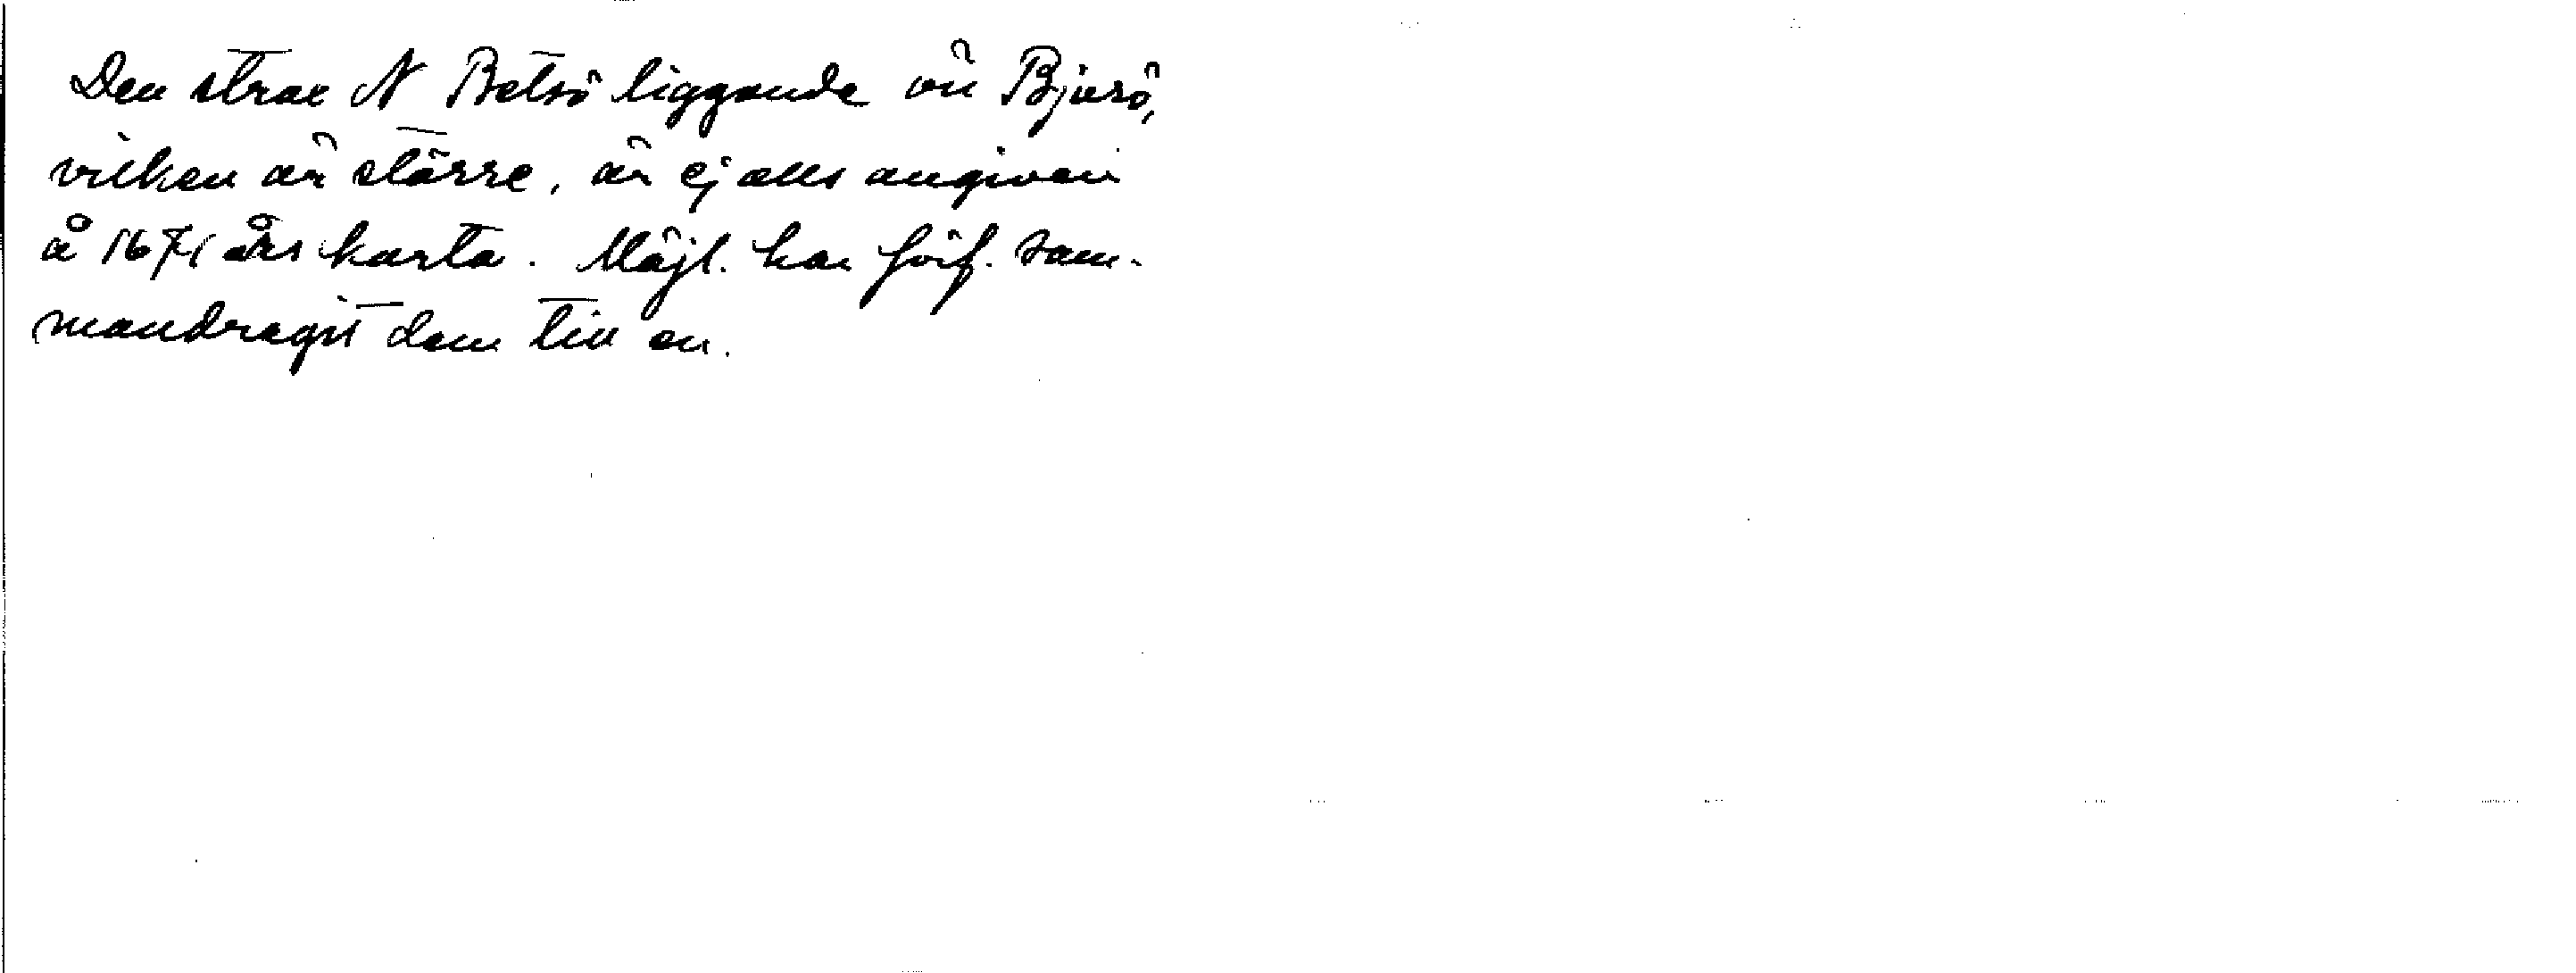 Den strax N Betsö liggande ön Bjursö,
vilken är större, är ej alls angiven
å 1671 års karta. Möjl. har förf. sam-
mandragit dem till en.